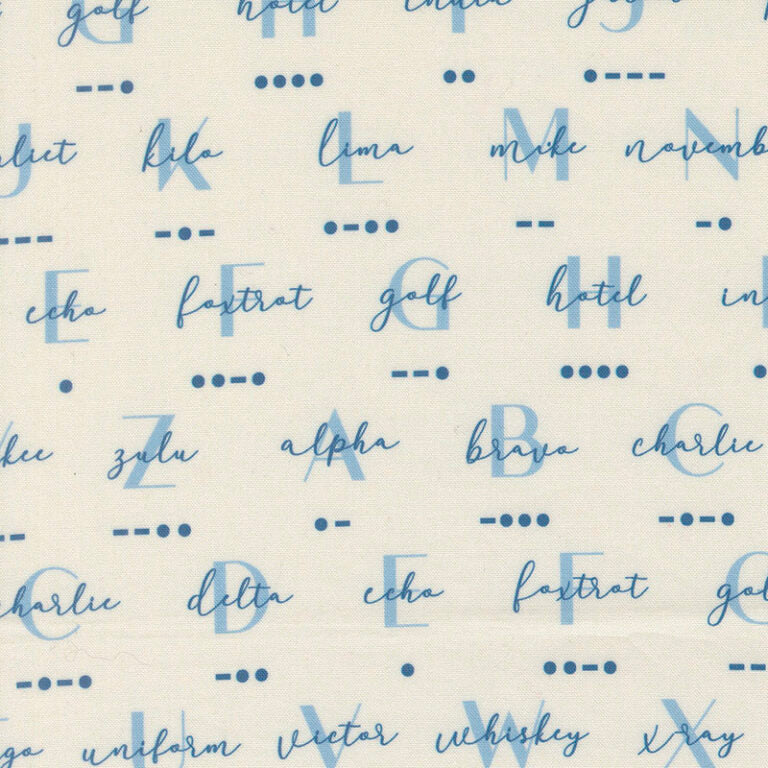 golf hotel india
G H I J
kilo lima mike novemb
J K L M N
echo foxtrot golf hotel in
E F G H
kee zulu alpha bravo charlie
Z A B C
charlie delta echo foxtrot gol
C D E F G
go uniform victor whiskey x-ray
U V W X